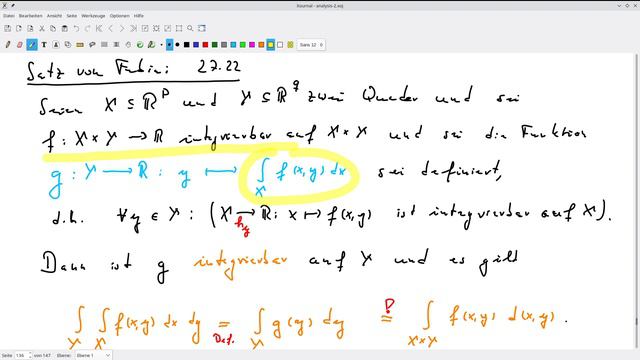 Xournal - analysis-2.xoj
Datei Bearbeiten Ansicht Seite Werkzeuge Optionen Hilfe
Sans 12
Satz von Fubini: 27.22
Seien X ⊆ ℝ^p und Y ⊆ ℝ^q zwei Quader und sei
f : X × Y → ℝ integrierbar auf X × Y und sei die Funktion
g : Y → ℝ : y ↦ ∫_X f(x,y) dx sei definiert,
d.h. ∀y ∈ Y : (X →_{h_y} ℝ : x ↦ f(x,y) ist integrierbar auf X).
Dann ist g integrierbar auf Y und es gilt
∫_Y ∫_X f(x,y) dx dy =_{Def.} ∫_Y g(y) dy =^! ∫_{X×Y} f(x,y) d(x,y).
Seite 136 von 147 Ebene: Ebene 1